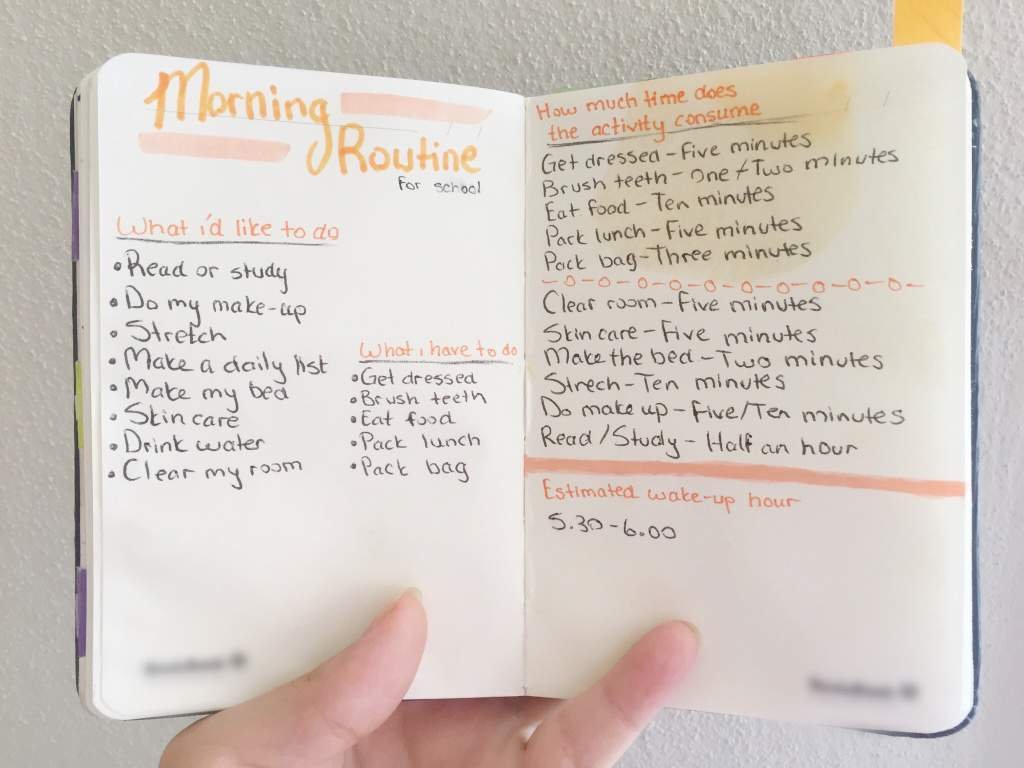 Morning
Routine
for school
What i'd like to do
• Read or study
• Do my make-up
• Stretch
• Make a daily list
• Make my bed
• Skin care
• Drink water
• Clear my room
What i have to do
• Get dressed
• Brush teeth
• Eat food
• Pack lunch
• Pack bag
How much time does
the activity consume
Get dressed - Five minutes
Brush teeth - One / Two minutes
Eat food - Ten minutes
Pack lunch - Five minutes
Pack bag - Three minutes
Clear room - Five minutes
Skin care - Five minutes
Make the bed - Two minutes
Strech - Ten minutes
Do make up - Five/Ten minutes
Read / Study - Half an hour
Estimated wake-up hour
5.30-6.00